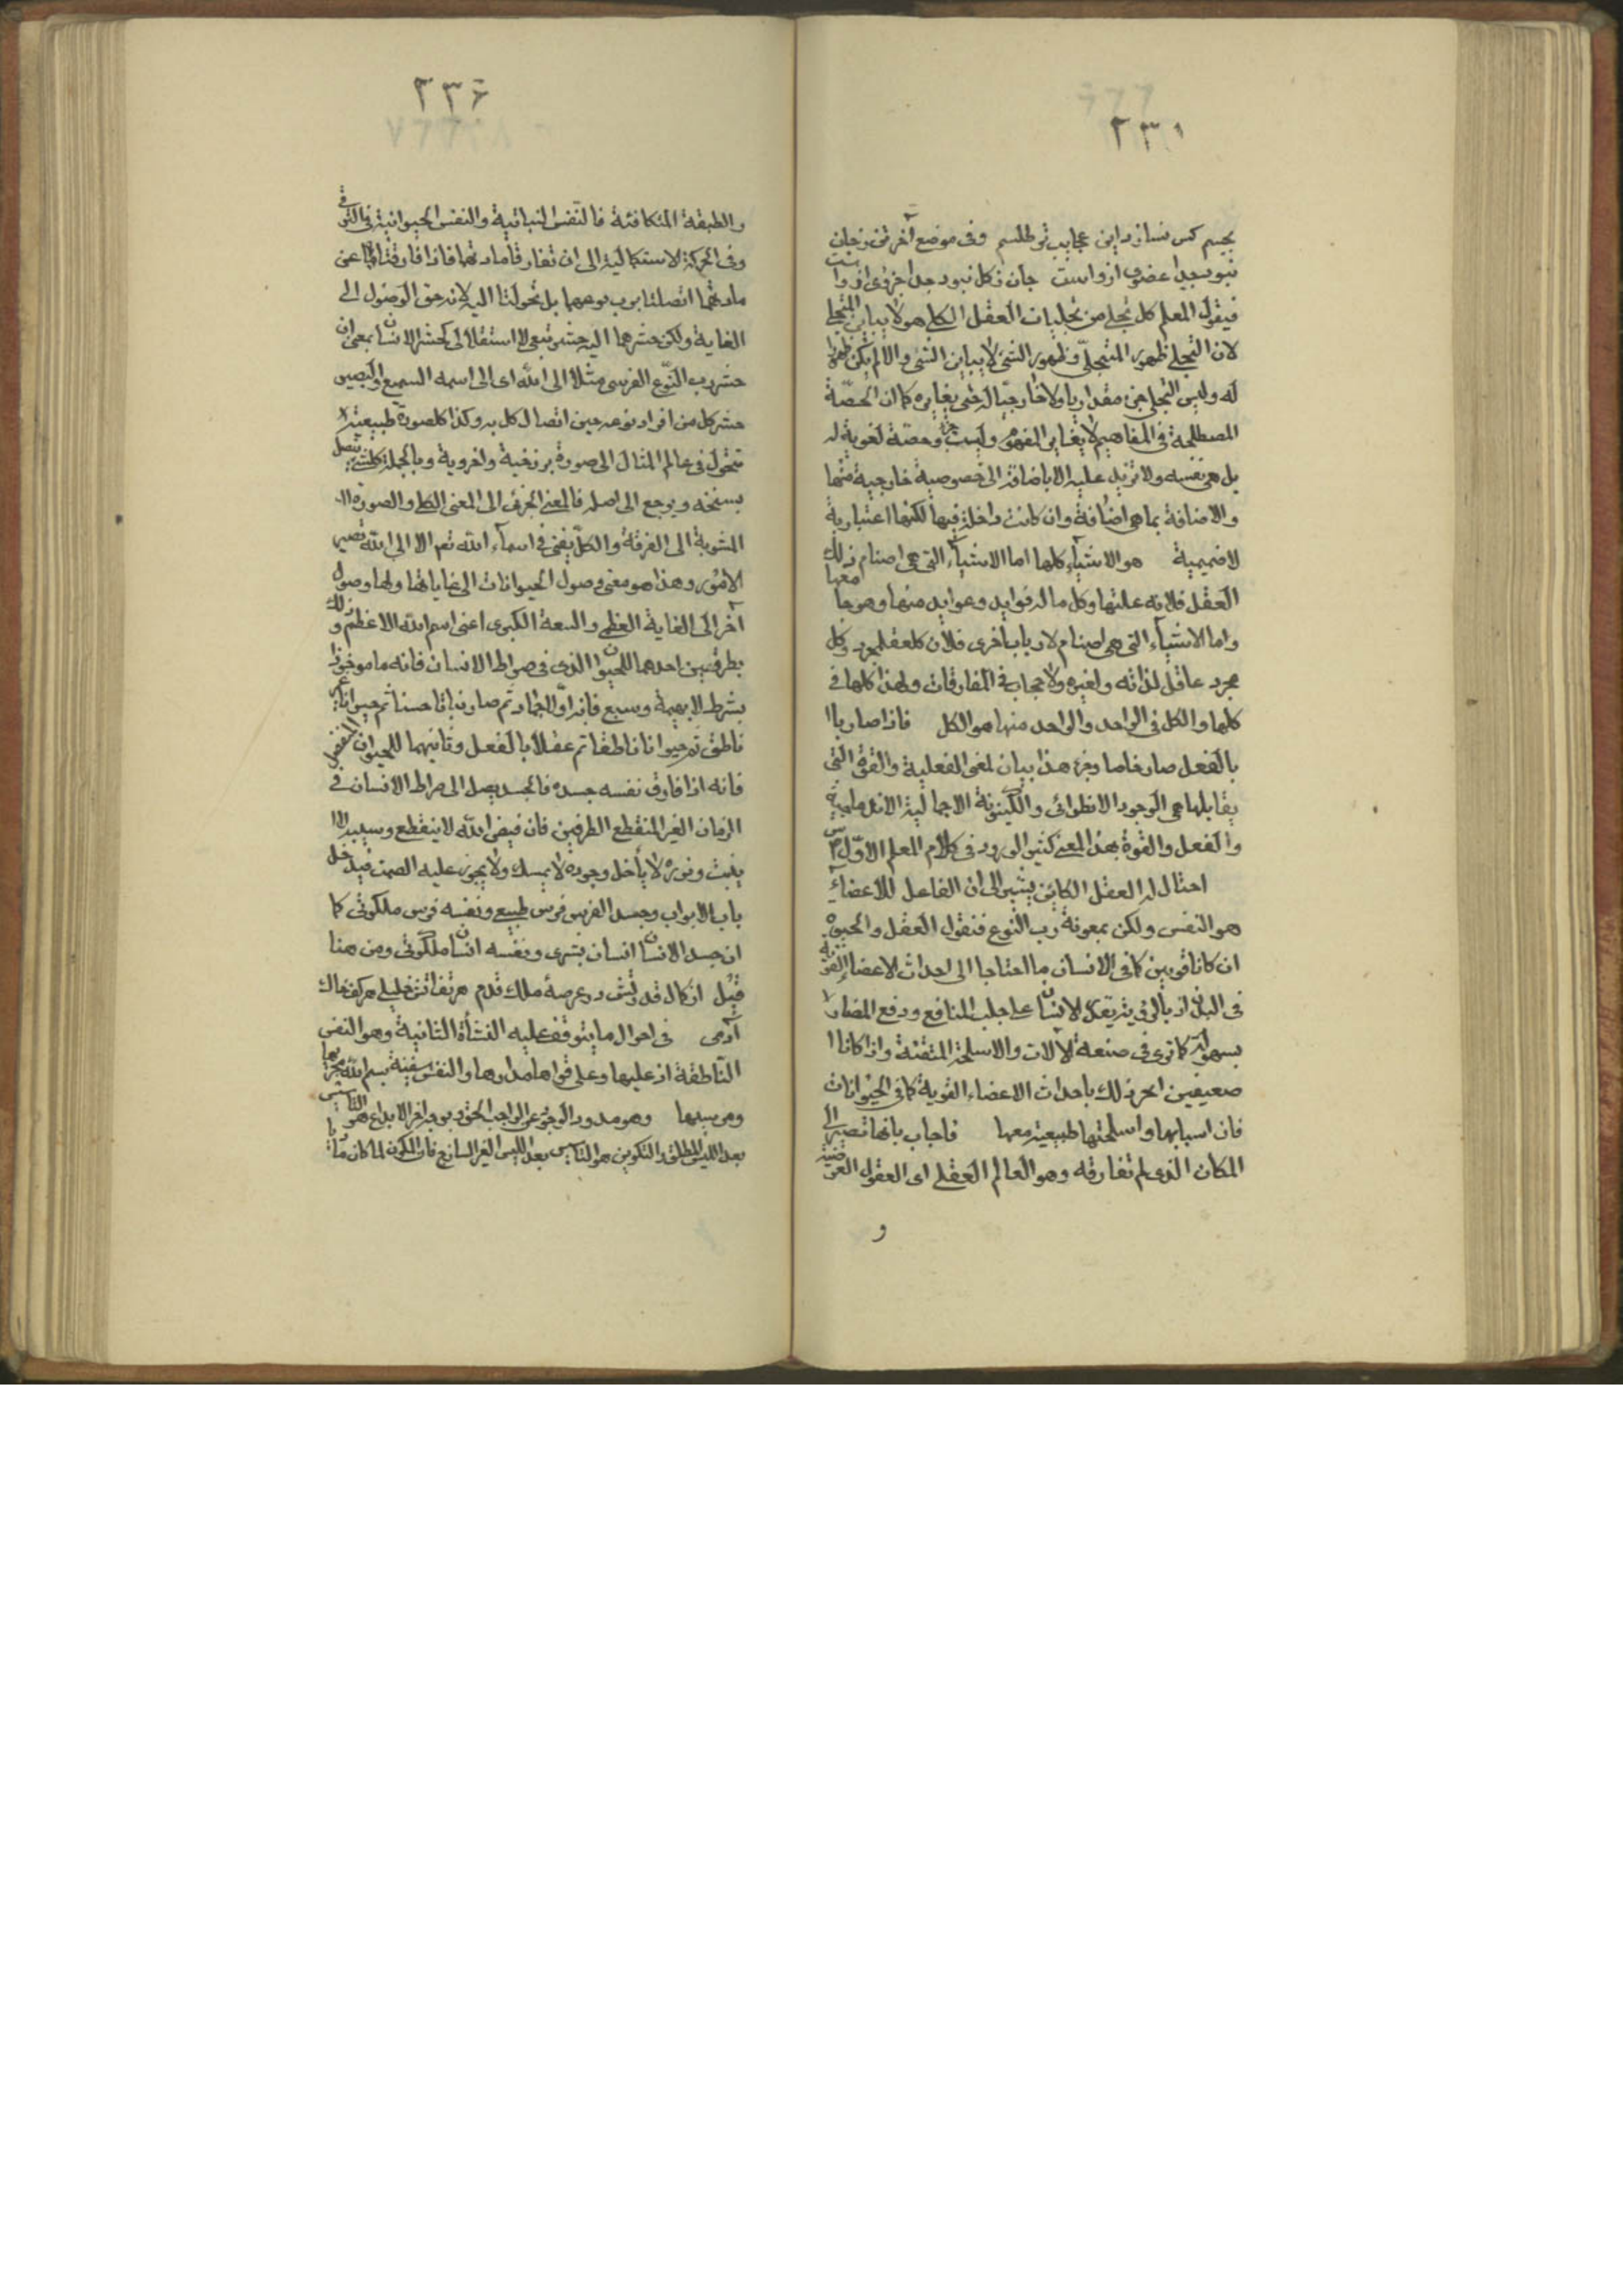 ٢٣١
بجسم كس نسازد اين عجايب تر طلسم وفى موضع آخر تن زجان
نبود جدا عضوى ازو است جان ز كل نبود جدا جزوى ازو است
فيقول المعلم كل تجلى من تجليات العقل الكلى هو لا يباين المتجلى
لان التجلى ظهور المتجلى وظهور الشئ لا يباين الشئ والا لم يكن ظهورا
له وليس التجلى جزء مقداريا ولا خارجيا له حتى يغايره كما ان الحصّة
المصطلحة فى المفاهيم لا يغاير المفهوم وليست جزء وحصة لغوية له
بل هى نفسه ولا تزيد عليه الا باضافة الى خصوصية خارجية عنها
والاضافة بما هى اضافة وان كانت داخلة فيها لكنها اعتبارية
لا ضميمية هو الاشياء كلها اما الاشياء التى هى اصنام ذلك
العقل فلانه علتها وكل ما له فوايد وعوايد منها وهو معها
واما الاشياء التى هى اصنام لارباب اخرى فلان كل عقل مجرد وكل
مجرد عاقل لذاته ولغيره ولا حجاب فى المفارقات ولهذا كلها فى
كلها والكل فى الواحد والواحد منها هو الكل فاذا صار با
بالفعل صار خاصا وجزء هذا بيان لمعنى الفعلية والقوة التى
يقابلها هى الوجود الانطوائى والكينونة الاجمالية الاندماجية
والفعل والقوة بهذا المعنى كثير الورود فى كلام المعلم الاوّل
احتال له العقل الكاين يشير الى ان الفاعل للاعضاء
هو النفس ولكن بمعونة رب النوع فنقول العقل والحيوة
ان كانا قويين كما فى الانسان ما احتاجا الى احداث الاعضاء القوية
فى البدن اذ بالروية يقدر الانسان على جلب المنافع ودفع المضار لا
بسهولة كما ترى فى صنعة الآلات والاسلحة المتقنة واذا كانا ا
ضعيفين انجبر ذلك باحداث الاعضاء القوية كما فى الحيوانات
فان اسبابها واسلحتها طبيعية معها فاجاب بانها تصير الى
المكان الذى لم تفارقه وهو العالم العقلى اى العقول العرضية
و
٢٣۶
والطبقة المتكافئة فالنفس النباتية والنفس الحيوانية فى الترقى
وفى الحركة الاستكمالية الى ان تفارقا مادتهما فاذا فارقتا عن
مادتهما اتصلتا برب نوعهما بل تحولتا اليه لانه حق الوصول الى
الغاية ولكن حشرهما اليه حشر تبعى لا استقلالى كحشر الانسان بمعنى ان
حشر رب النوع الفرسى مثلا الى الله اى الى اسمه السميع البصير
حشر كل من افراد نوعه حين اتصال الكل به وكذا كل صورة طبيعية لا
تتحول فى عالم المثال الى صورة برزخية واخروية وبالجملة كل شئ يتصل
بسنخه ويرجع الى اصله فالمعنى الجزئى الى المعنى الكلى والصورة الى
المشوبة الى الصرفة والكل يفنى فى اسماء الله تعم الا الى الله تصير
الامور وهذا هو معنى وصول الحيوانات الى غاياتها ولها وصول
آخر الى الغاية العظمى والسعة الكبرى اعنى اسم الله الاعظم وذلك
بطرفين احدهما للحيوان الذى فى صراط الانسان فانه ماموخوذا
بشرط الا بهيمة وسبع فانه اوّلا جماد ثم صار نباتا حسنا ثم حيوانا غير
ناطق ثم حيوانا ناطقا ثم عقلا بالفعل وثانيهما للحيوان النفسى
فانه اذا فارق نفسه جسده فالجسد يصل الى صراط الانسان فى
الزمان الغير المنقطع الطرفين فان فيض الله لا ينقطع وسيبه لا
ينبت ونوره لا يأفل وجوده لا يمسك ولا يجوز عليه الصمت فيدخل
باب الابواب وجسد الفرس فرس طبيعى ونفسه فرس ملكوتى كما
ان جسد الانسان انسان بشرى ونفسه انسان ملكوتى ومن هنا
قيل از كمال قدرتش در عرصهٔ ملك قدم هر تف آتش خليلى هر كف خاك
آدمى فى احوال ما يتوقف عليه النشأة الثانية وهو النفس
الناطقة اذ عليها وعلى قواها مدارها والنفس سفينة بسم الله مجريها
ومرسيها وهو مدود الوجود عن الواجب الحق الابداع هو التأسيس
بعد الليس المطلق والتكوين هو التأييس بعد الليس الغير السازج فان الكون لما كان